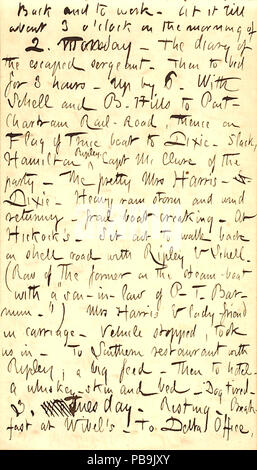 Back and to work – at it till
about 3 o'clock on the morning of
2. Monday – The diary of
the escaped sergeant. Then to bed
for 3 hours – Up by 6. With
Schell and B. Hills to Pont-
chartrain Rail-Road, thence on
Flag of Truce boat to Dixie – Slack,
Hamilton Ripley Capt Mc Clure of the
party – The pretty Mrs Harris –
Dixie – Heavy rain storm and wind
returning – frail boat creaking – At
Hickock's – Set out to walk back
on shell road with Ripley & Schell.
(Row of the former on the steam-boat
with a "son-in-law of P–T. Bar-
num–") Mrs Harris & lady friend
in carriage – Vehicle stopped, took
us in – To Southern restaurant with
Ripley; a big feed – Then to hotel –
a whiskey-skin and bed – Dog tired –
3. Tuesday – Resting – Break-
fast at Wibel's – To Delta Office,
alamy
Image ID: PB9JXY
www.alamy.com